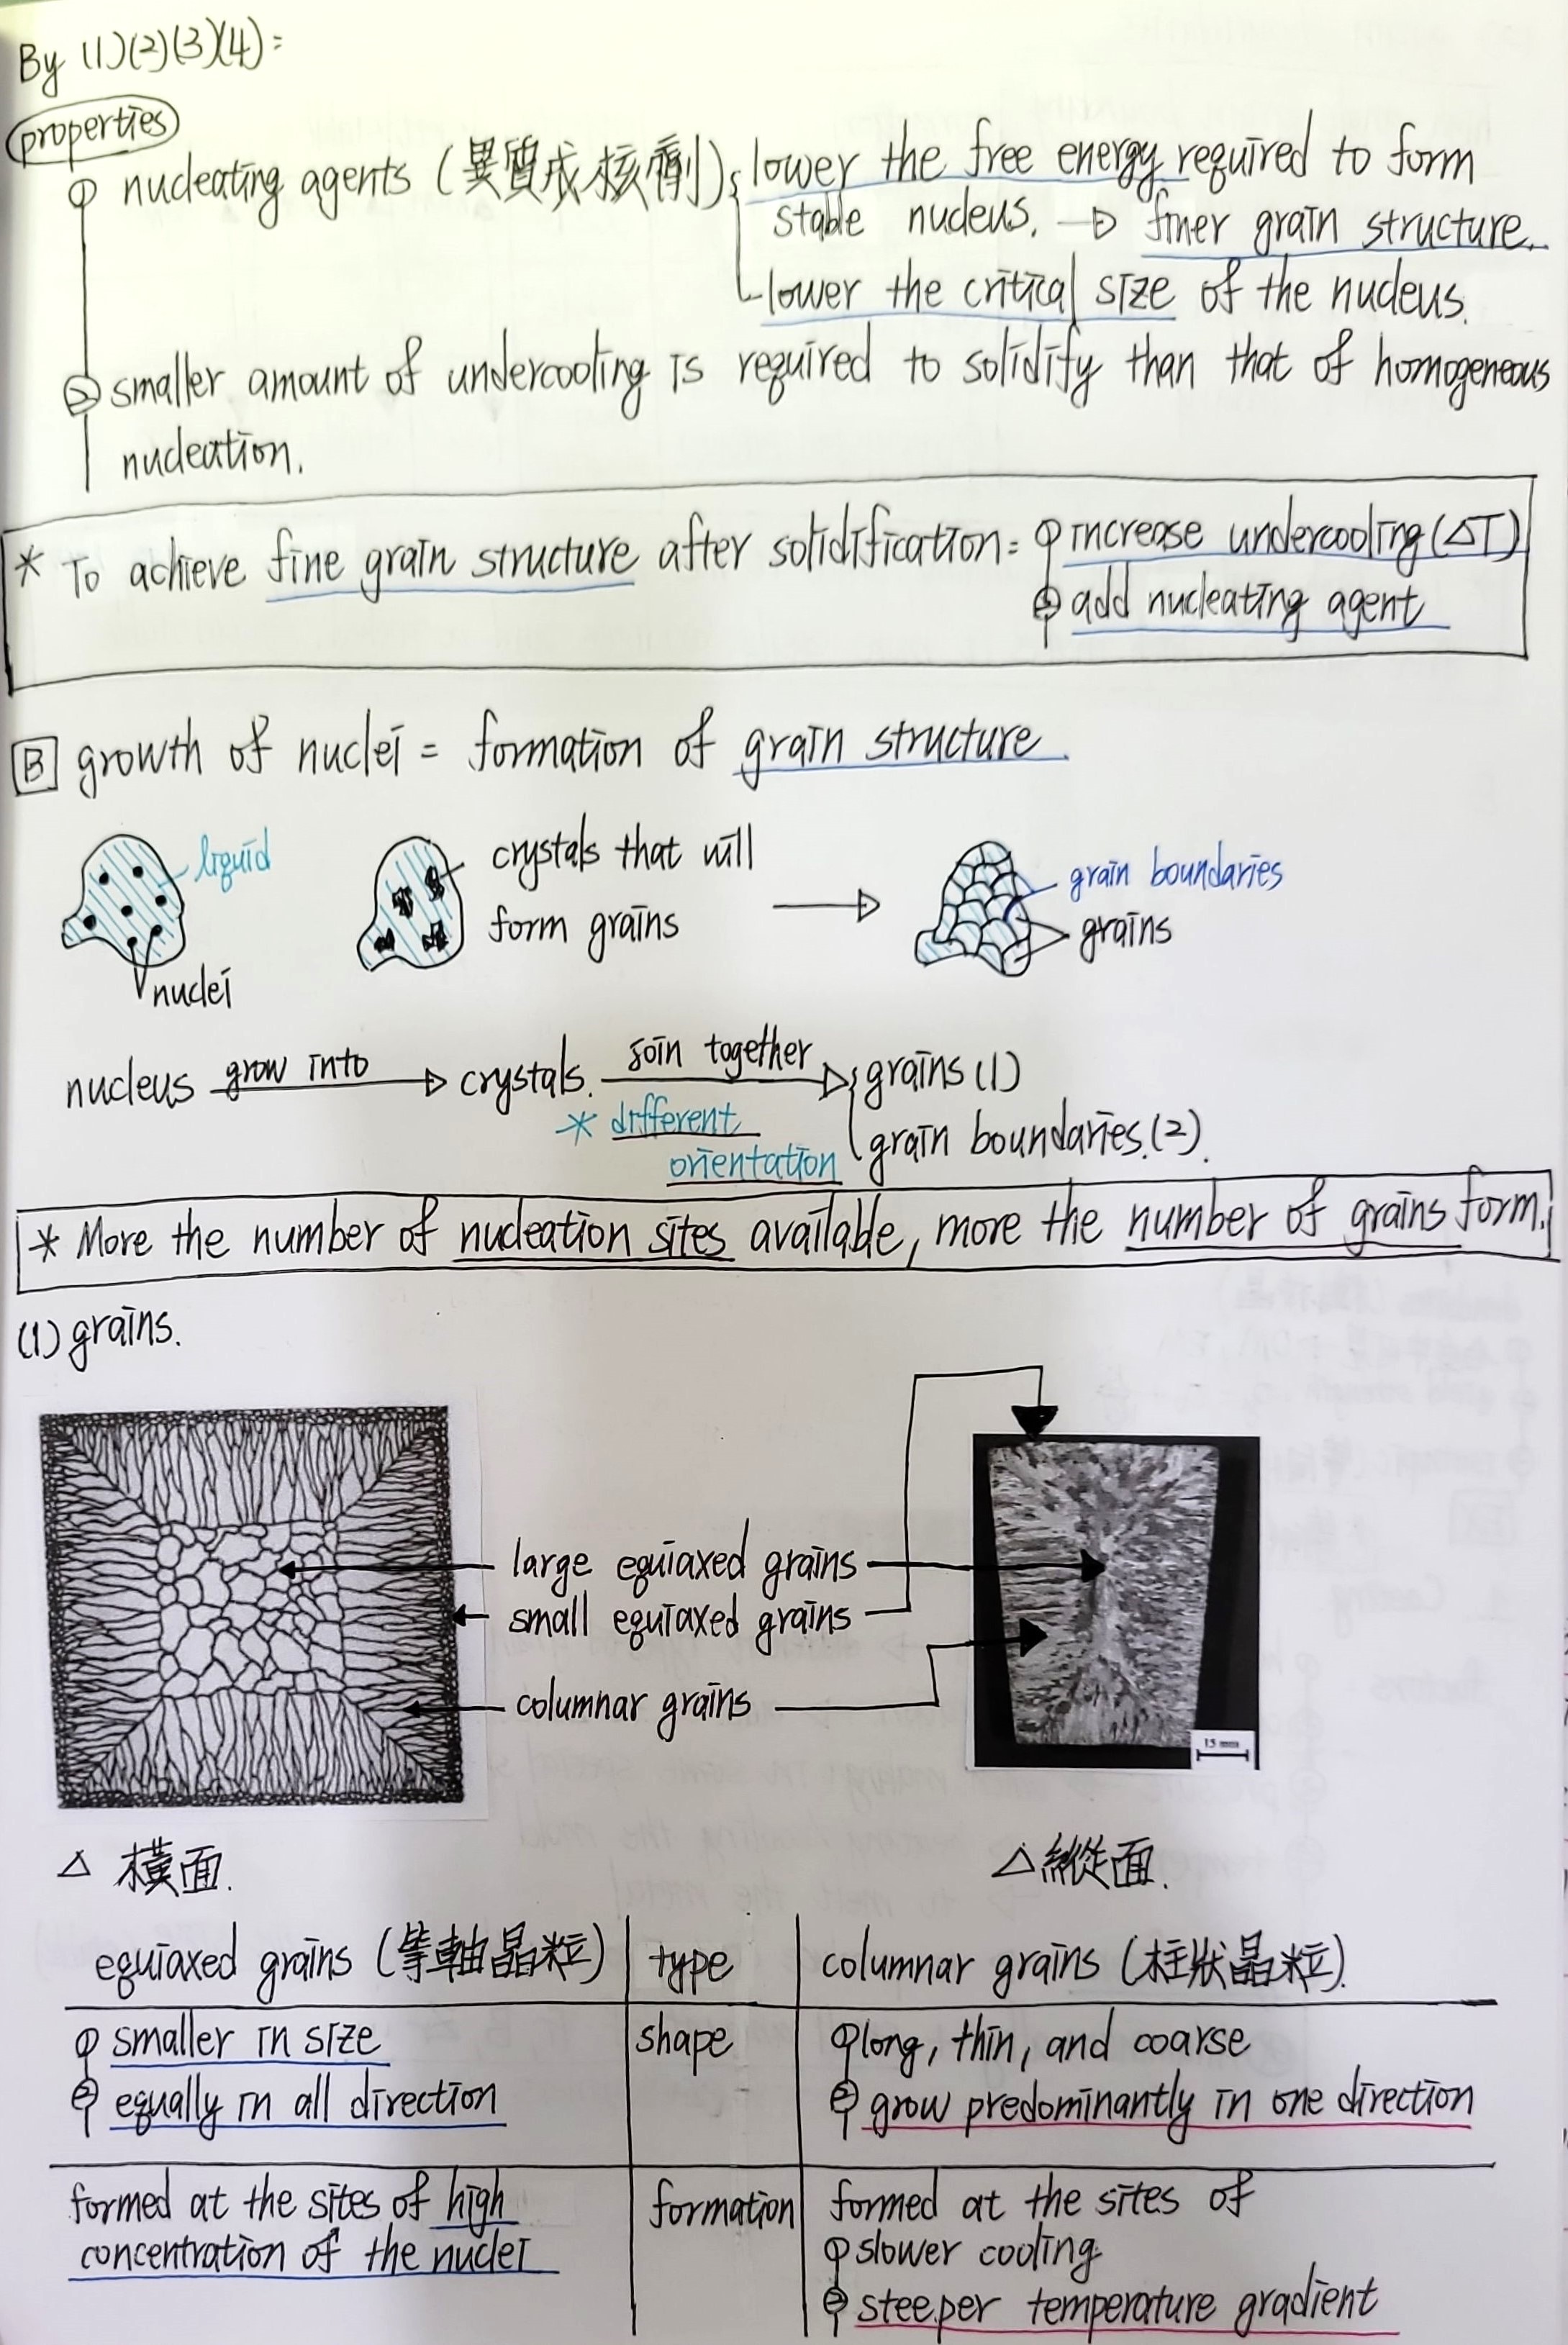 By (1)(2)(3)(4):
properties
① nucleating agents (異質成核劑) lower the free energy required to form
stable nucleus. → finer grain structure.
lower the critical size of the nucleus.
② smaller amount of undercooling is required to solidify than that of homogeneous
nucleation.
* To achieve fine grain structure after solidification: ① increase undercooling (ΔT)
② add nucleating agent
B growth of nuclei = formation of grain structure
liquid
nuclei
crystals that will
form grains
grain boundaries
grains
nucleus grow into crystals. join together grains (1)
* different
orientation
grain boundaries.(2).
* More the number of nucleation sites available, more the number of grains form.
(1) grains.
large equiaxed grains
small equiaxed grains
columnar grains
15 mm
△ 橫面.
△ 縱面.
equiaxed grains (等軸晶粒) type columnar grains (柱狀晶粒).
① smaller in size shape ① long, thin, and coarse
② equally in all direction ② grow predominantly in one direction
formed at the sites of high formation formed at the sites of
concentration of the nuclei ① slower cooling
② steeper temperature gradient